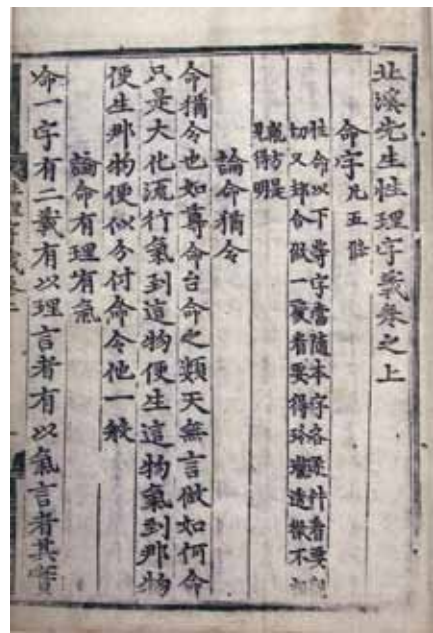 北溪先生性理字義卷之上
命字 凡五條
性命以下等字當隨本字各逐件看要親
切又却合做一處看要得玲瓏透徹不相
亂方是
見得明
論命猶令
命猶令也如尊命台命之類天無言做如何命
只是大化流行氣到這物便生這物氣到那物
便生那物便似分付命令他一般
論命有理有氣
命一字有二義有以理言者有以氣言者其實